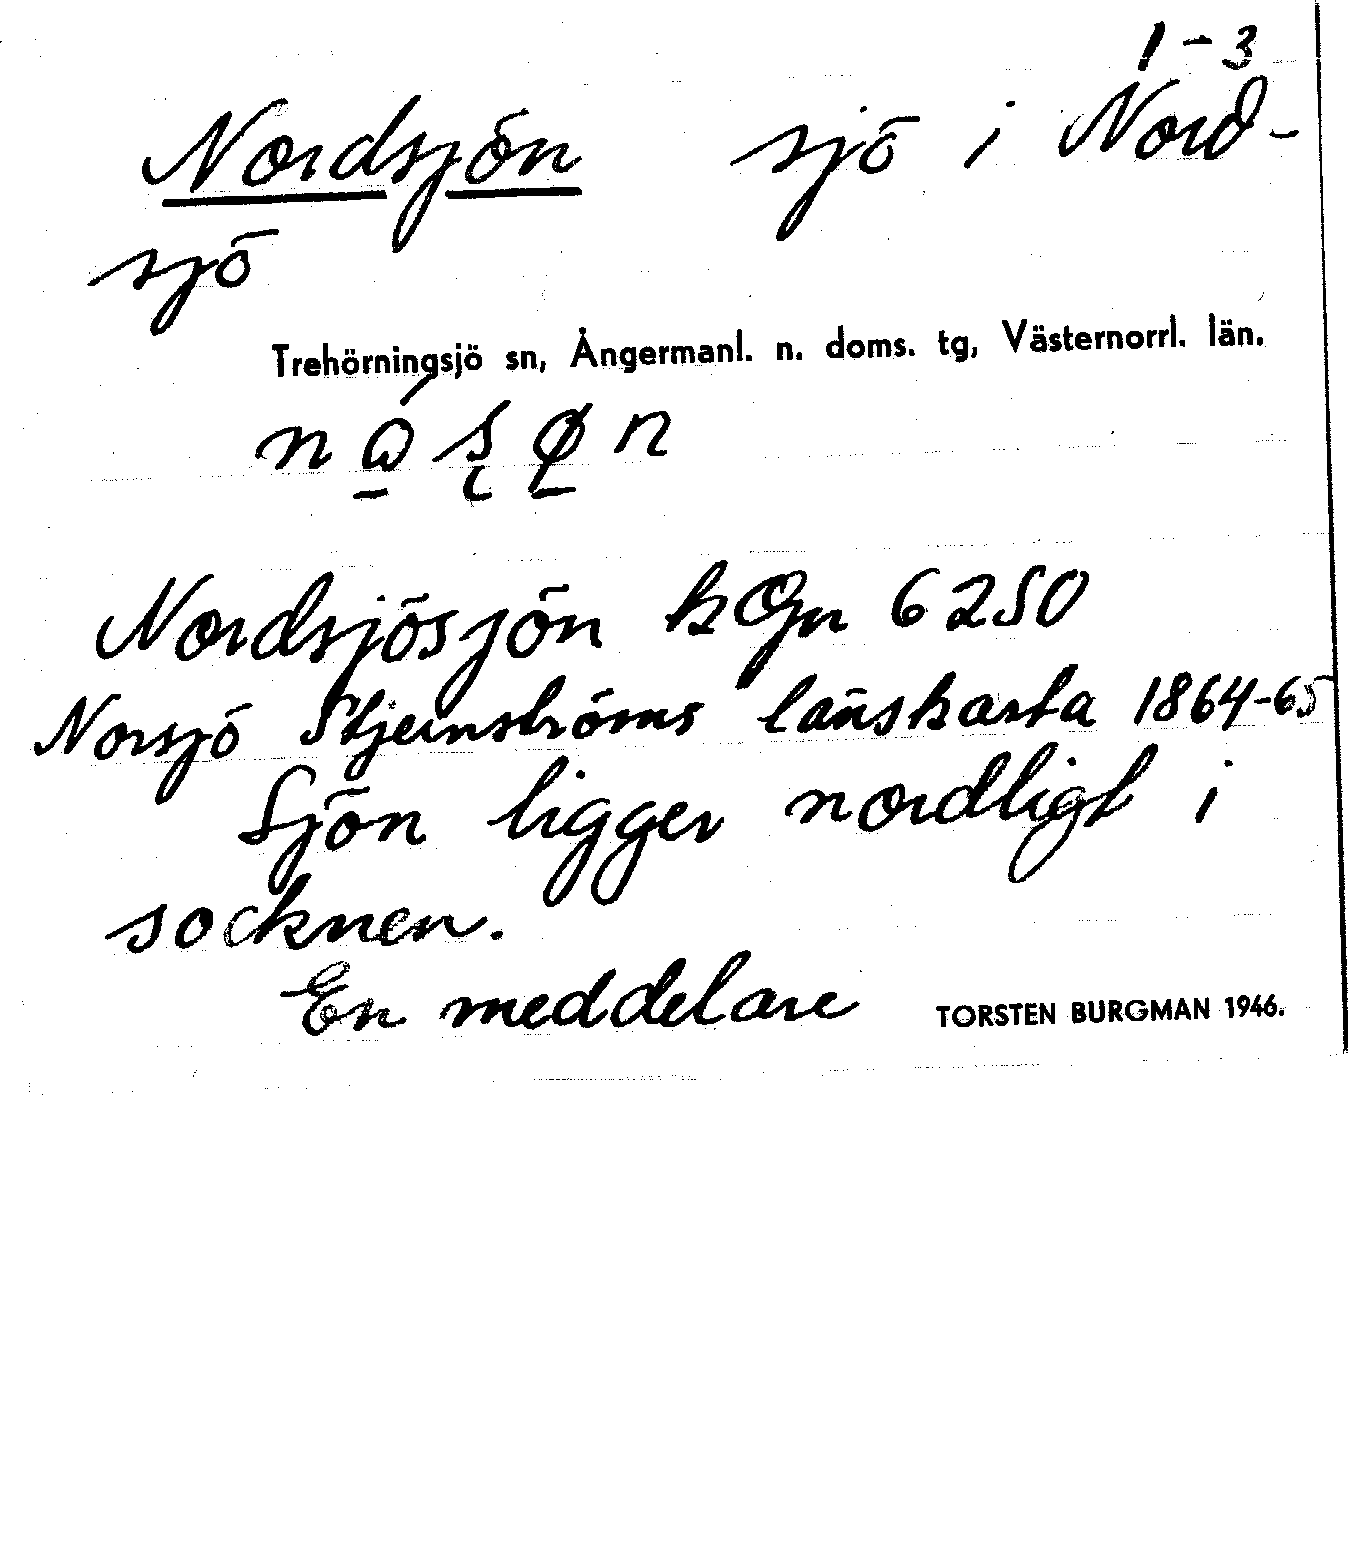 1-3
Nordsjön sjö i Nord-
sjö
Trehörningsjö sn, Ångermanl. n. doms. tg, Västernorrl. län.
Nordsjösjön 6250
Norsjö Stjernströms länskarta 1864-65
Sjön ligger nordligt i
socknen.
En meddelare TORSTEN BURGMAN 1946.